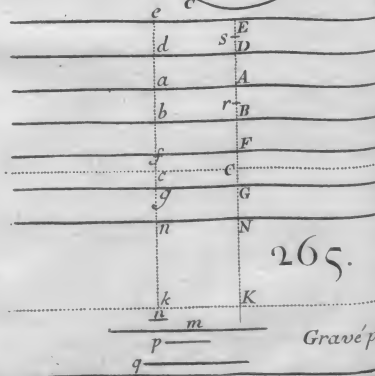 c
e E
s
d D
a A
r
b B
f F
c C
g G
n N
265.
k K
n
m
p
Gravé p
q